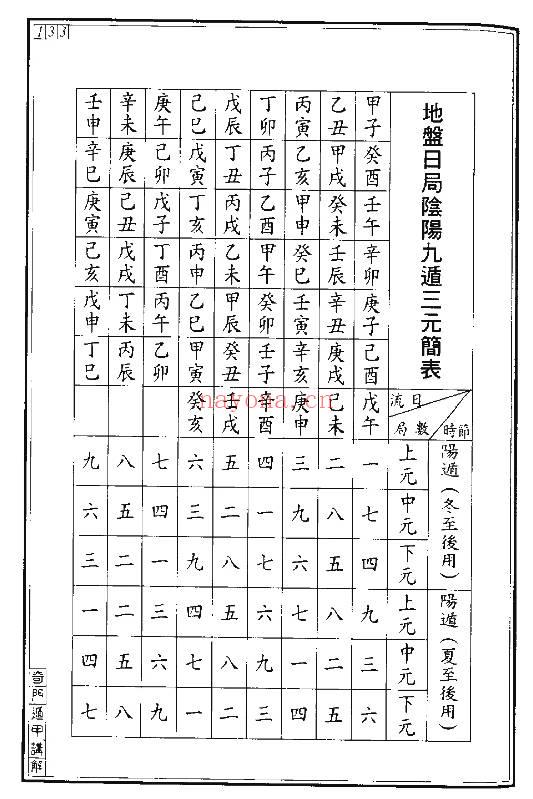 133
地盤日局陰陽九遁三元簡表
流日
局數
時節
陽遁（冬至後用）陽遁（夏至後用）
上元 中元 下元 上元 中元 下元
甲子 癸酉 壬午 辛卯 庚子 己酉 戊午 一 七 四 九 三 六
乙丑 甲戌 癸未 壬辰 辛丑 庚戌 己未 二 八 五 八 二 五
丙寅 乙亥 甲申 癸巳 壬寅 辛亥 庚申 三 九 六 七 一 四
丁卯 丙子 乙酉 甲午 癸卯 壬子 辛酉 四 一 七 六 九 三
戊辰 丁丑 丙戌 乙未 甲辰 癸丑 壬戌 五 二 八 五 八 二
己巳 戊寅 丁亥 丙申 乙巳 甲寅 癸亥 六 三 九 四 七 一
庚午 己卯 戊子 丁酉 丙午 乙卯 七 四 一 三 六 九
辛未 庚辰 己丑 戊戌 丁未 丙辰 八 五 二 二 五 八
壬申 辛巳 庚寅 己亥 戊申 丁巳 九 六 三 一 四 七
奇門遁甲講解
nayona.cn